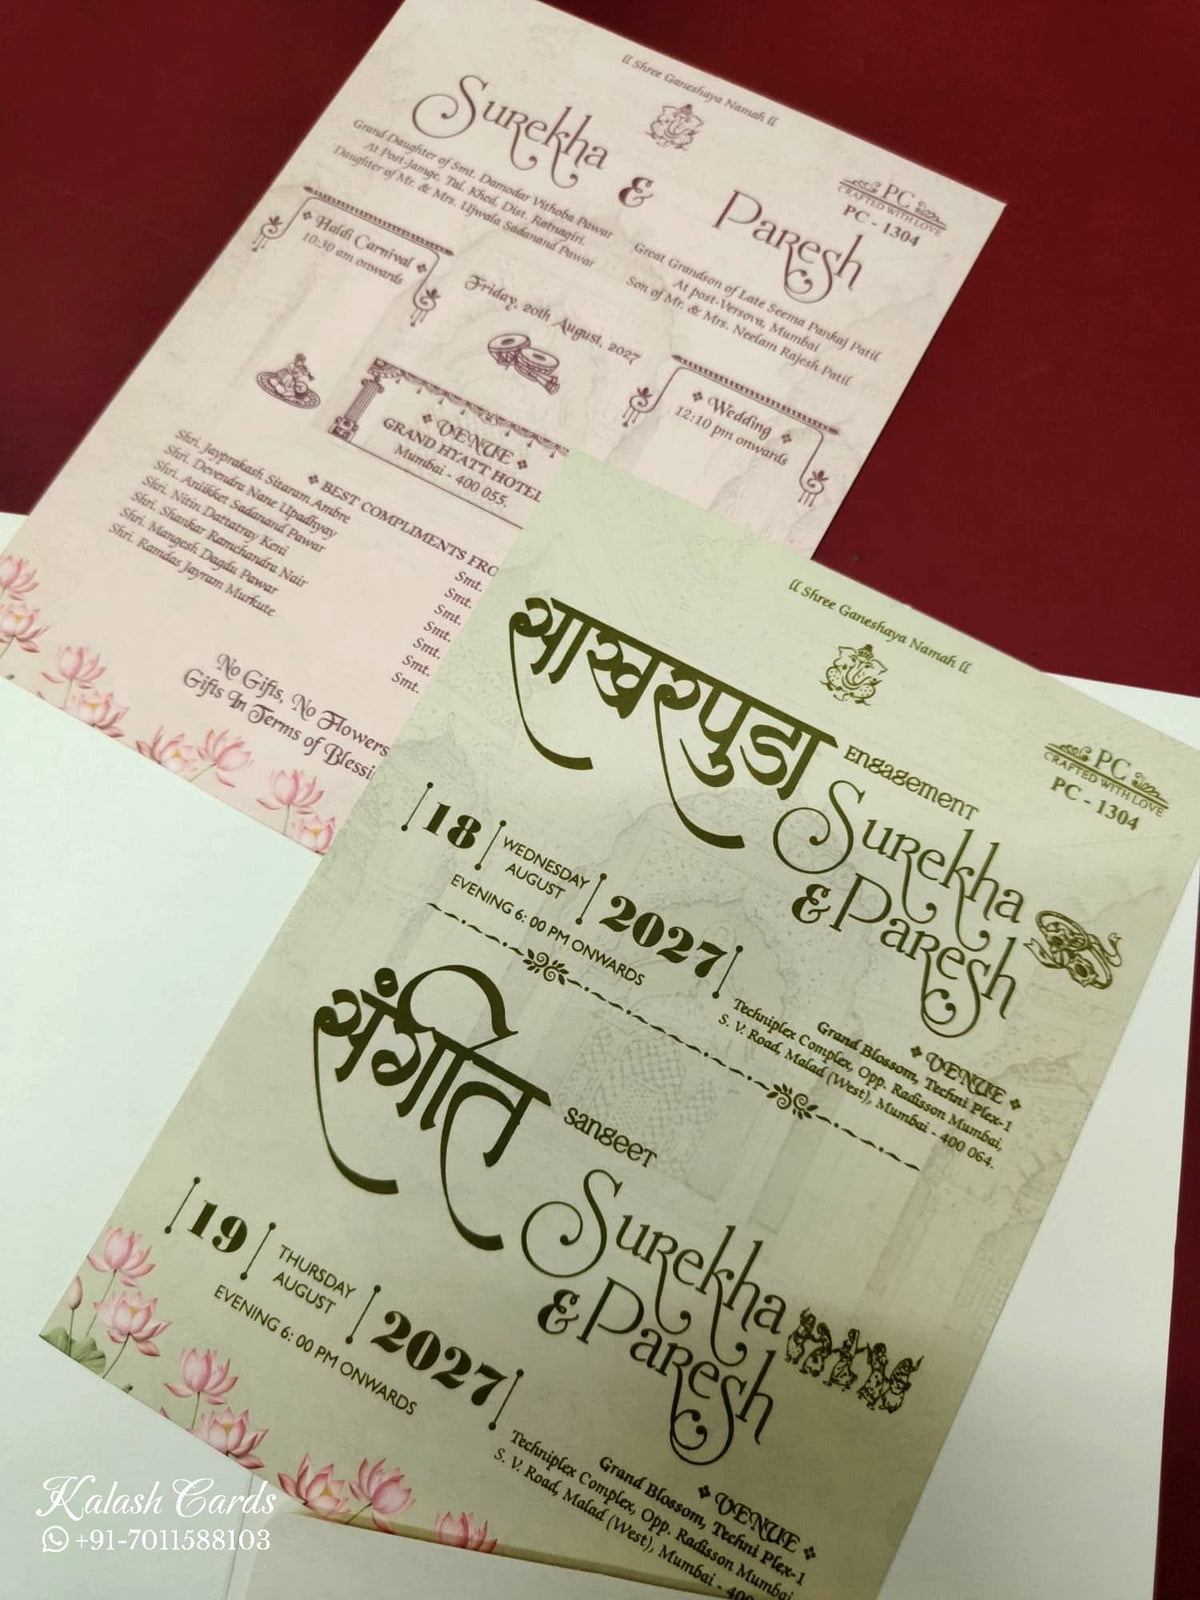 ll Shree Ganeshaya Namah ll
PC
CRAFTED WITH LOVE
PC - 1304
Surekha
&
Paresh
Grand Daughter of Smt. Damodar Vithoba Pawar
At Post-Jamge, Tal. Khed, Dist. Ratnagiri.
Daughter of Mr. & Mrs. Ujwala Sadanand Pawar
Great Grandson of Late Seema Pankaj Patil
At post-Versova, Mumbai
Son of Mr. & Mrs. Neelam Rajesh Patil
Haldi Carnival
10:30 am onwards
Friday, 20th August, 2027
Wedding
12:10 pm onwards
VENUE
GRAND HYATT HOTEL
Mumbai - 400 055.
BEST COMPLIMENTS FRO
Shri. Jayprakash Sitaram Ambre
Shri. Devendra Nane Upadhyay
Shri. Aniikket Sadanand Pawar
Shri. Nitin Dattatray Keni
Shri. Shankar Ramchandra Nair
Shri. Mangesh Dagdu Pawar
Shri. Ramdas Jayram Murkute
Smt.
Smt.
Smt.
Smt.
Smt.
Smt.
Smt.
No Gifts, No Flowers
Gifts In Terms of Blessi
ll Shree Ganeshaya Namah ll
PC
CRAFTED WITH LOVE
PC - 1304
साखरपुडा
Engagement
Surekha
& Paresh
18 WEDNESDAY AUGUST 2027
EVENING 6: 00 PM ONWARDS
VENUE
Grand Blossom, Techni Plex-1
Techniplex Complex, Opp. Radisson Mumbai,
S. V. Road, Malad (West), Mumbai - 400 064.
संगीत
Sangeet
Surekha
& Paresh
19 THURSDAY AUGUST 2027
EVENING 6: 00 PM ONWARDS
VENUE
Grand Blossom, Techni Plex-1
Techniplex Complex, Opp. Radisson Mumbai
S. V. Road, Malad (West), Mumbai - 400
Kalash Cards
+91-7011588103